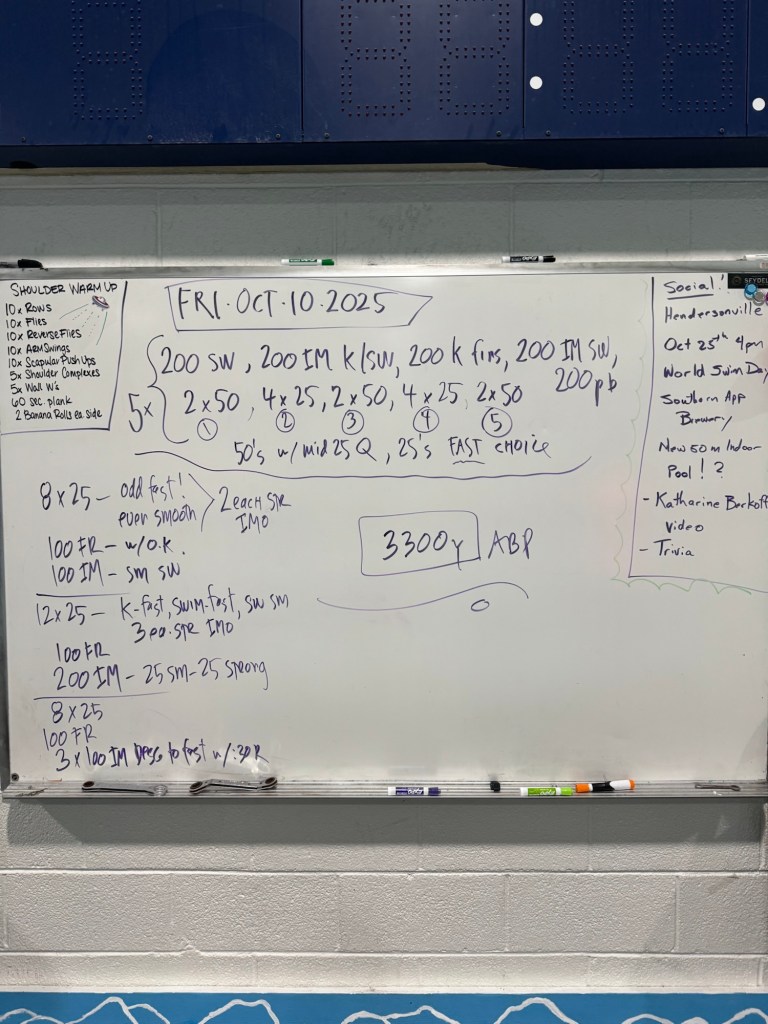 SHOULDER WARM UP
10x ROWS
10x FLIES
10x REVERSE FLIES
10x ARM SWINGS
10x SCAPULAR PUSH UPS
5x SHOULDER COMPLEXES
5x WALL W'S
60 SEC. PLANK
2 BANANA ROLLS EA. SIDE
FRI. OCT. 10. 2025
5x
200 SW, 200 IM K/SW, 200 K fins, 200 IM SW,
200 pb
2x50, 4x25, 2x50, 4x25, 2x50
1 2 3 4 5
50's w/ mid 25 Q, 25's FAST CHOICE
8x25 - odd fast!
even smooth
2 each STR
IMO
100 FR - w/O.K.
100 IM - sm sw
12x25 - K-fast, SWIM-fast, SW SM
3 ea. STR IMO
100 FR
200 IM - 25 sm - 25 strong
8x25
100 FR
3x100 IM Desc to fast w/:30 R
3300y ABP
Social!
Hendersonville
Oct 25th 4pm
World Swim Day
Southern App
Brewery
New 50m Indoor
Pool! ?
- Katharine Berkoff
Video
- Trivia